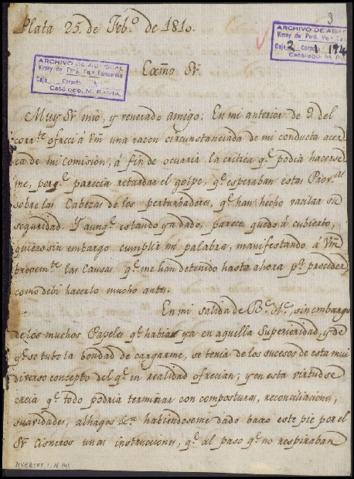 3
Plata 25. de Feb.º de 1810.
ARCHIVO DE
Virrey de Perú
Exc̃mo S.r
Muy S.r mio, y venerado amigo: En mi anterior de 9 del
corr.te ofreci á Vm una razon circunstanciada de mi conducta acer
ca de mi Comision, á fin de ocurrir la critica q.e podia hacerse
me, porq.e parecia retardar el golpe, q.e esperaban estas Prov.as
sobre las Cabezas de los perturbadores, q.e han hecho vacilar su
seguridad. Y aunq.e estando ya dado, parece quedo á cubierto,
quiero sin embargo cumplir mi palabra, manifestando á Vm
las causas, q.e me han detenido hasta ahora p.a proceder
como debi hacerlo mucho antes.
En mi salida de B.s A.s, sin embargo
de los muchos Papeles q.e habian ya en aquella Superioridad, y de
q.e se tubo la bondad de cargarme, se tenia de los sucesos de esta mui
diverso concepto del q.e en realidad ofrecian; y en esta virtud se
creia q.e todo podria terminar con composturas, reconciliaciones,
suavidades, alhagos &.a habiendoseme dado baxo este pie por el
S.r Cisneros unas instrucciones, q.e al paso q.e no respiraban